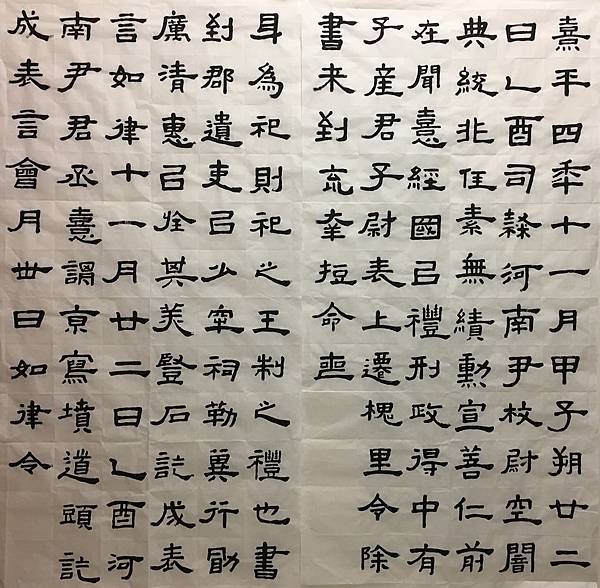 熹平四年十一月甲子朔廿二
日乙酉司隸河南尹校尉空闇
典統非任素無績勳宣善仁前
在聞憙經國以禮刑政得中有
子產君子尉表上遷槐里令除
書来到不幸短命喪
身為祀則祀之王制之禮也書
到郡遣吏以少牢祠勒異行勖
厲清惠以旌其美豎石訖成表
言如律十一月廿二日乙酉河
南尹君丞憙謂京寫墳道頭訖
成表言會月卅日如律令